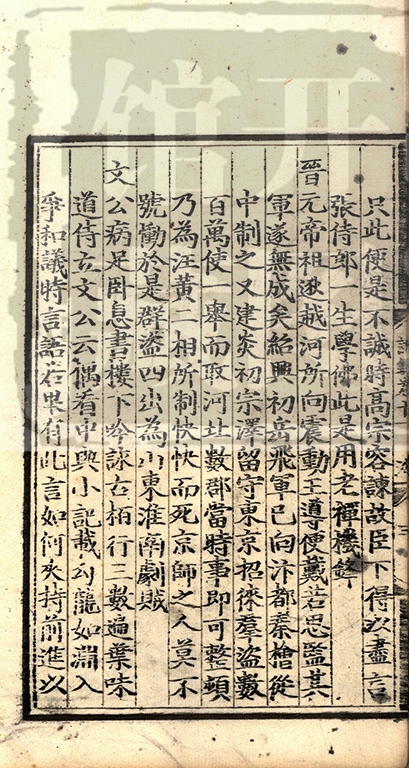 只此便是不誠時高宗容諫故臣下得以盡言
張侍郎一生學佛此是用老禪機鋒
晉元帝祖逖越河所向震動王導便戴若思監其
軍遂無成矣紹興初岳飛軍已向汴都秦檜從
中制之又建炎初宗澤留守東京招徠羣盜數
百萬使一舉而取河北數郡當時事即可整頓
乃為汪黃二相所制怏怏而死京師之人莫不
號慟於是群盜四出為山東淮南劇賊
文公病足卧息書樓下吟詠古柏行三數遍葉味
道侍立文公云偶看中興小記載勾龍如淵入
爭和議時言語若果有此言如何夾持前進以